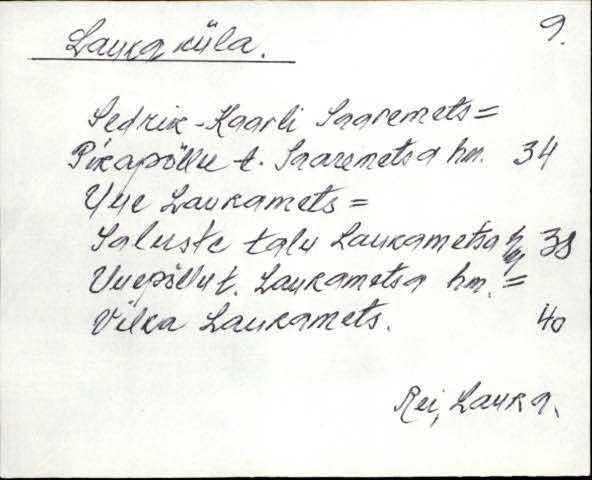 9.
Lauka küla.
Sedrik-Kaarli Saaremets =
Pikapõllu t. Saaremetsa hm. 34
Uue Laukamets =
Saluste talu Laukametsa hm 38
Uuepõllu t. Laukametsa hm. =
Vilka Laukamets. 40
Rei, Lauka.